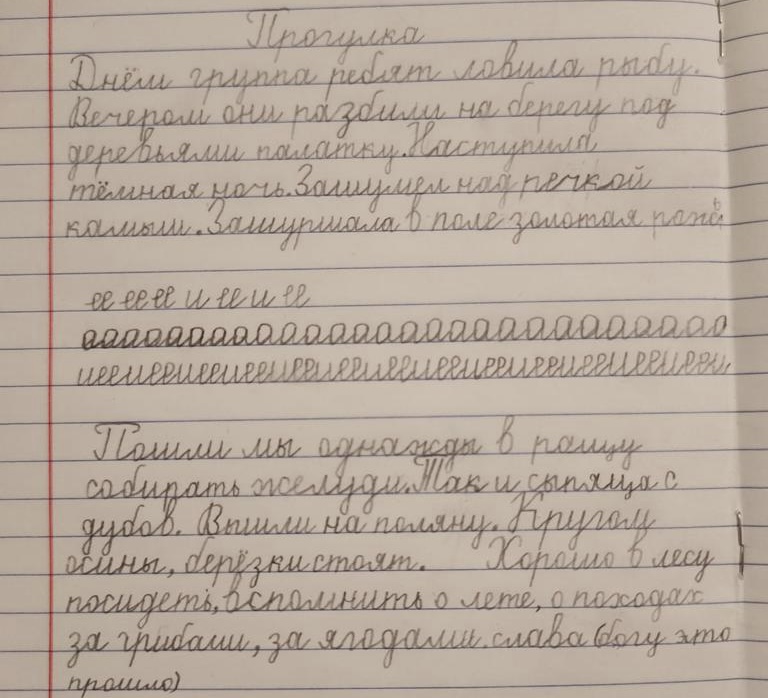 Прогулка
Днём группа ребят ловила рыбу.
Вечером они разбили на берегу под
деревьями палатку. Наступила
тёмная ночь. Зашумел над речкой
камыш. Зашуршала в поле золотая рожь
ее ее ее и ее и ее
аааааааааааааааааааааааааа
иееиееиееиееиееиееиееиееиееиееиееиееи
Пошли мы однажды в ращу
собирать желуди. Так и сыпяца с
дубов. Вышли на поляну. Кругом
осины, берёзки стоят. Хорошо в лесу
посидеть, вспомнить о лете, о походах
за грибами, за ягодами. слава (богу это
прошло)